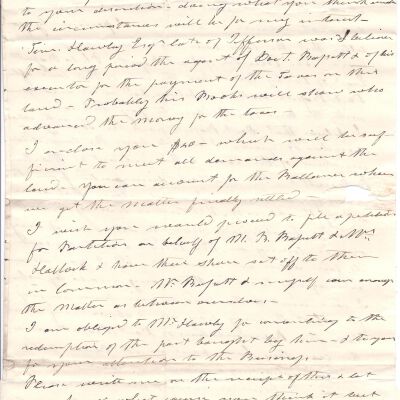 to your discretion - doing what you think under
the circumstances will be for my interest -
Jona Hawley Esqr late of Jefferson was I believe
for a long period the agent of Doct. Bassett & of his
executor for the payment of the taxes on this
land - Probably his Books will show who
advanced the money for the taxes -
I enclose you $20 - which will be suf-
ficient to meet all demands against the
land - You can account for the Ballance when
we get the matter finally settled -
I wish you would proceed to file a petition
for Partition on behalf of M. B. Bassett & Mrs
Hallock & have their share set off to them
in Common. Mr Bassett & myself can arrange
the matter as between ourselves. -
I am obliged to Mr Hawley for consenting to the
redemption of the part bought by him - & to you
for your attention to the Business.
Please write me on the receipt of this & let
what course you think it best